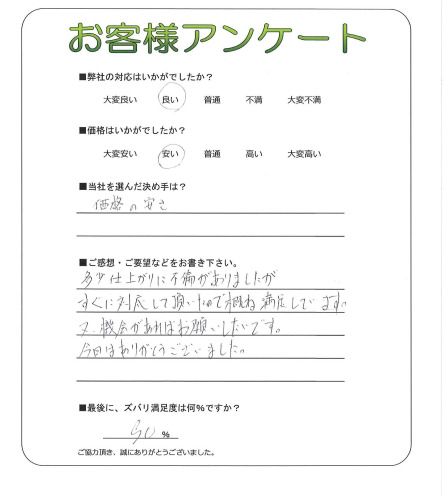 お客様アンケート
■弊社の対応はいかがでしたか？
大変良い 良い 普通 不満 大変不満
■価格はいかがでしたか？
大変安い 安い 普通 高い 大変高い
■当社を選んだ決め手は？
価格の安さ
■ご感想・ご要望などをお書き下さい。
多少仕上がりに不備がありましたが
すぐに対応して頂いたので概ね満足しています。
又、機会があればお願いしたいです。
今回はありがとうございました。
■最後に、ズバリ満足度は何％ですか？
％
ご協力頂き、誠にありがとうございました。